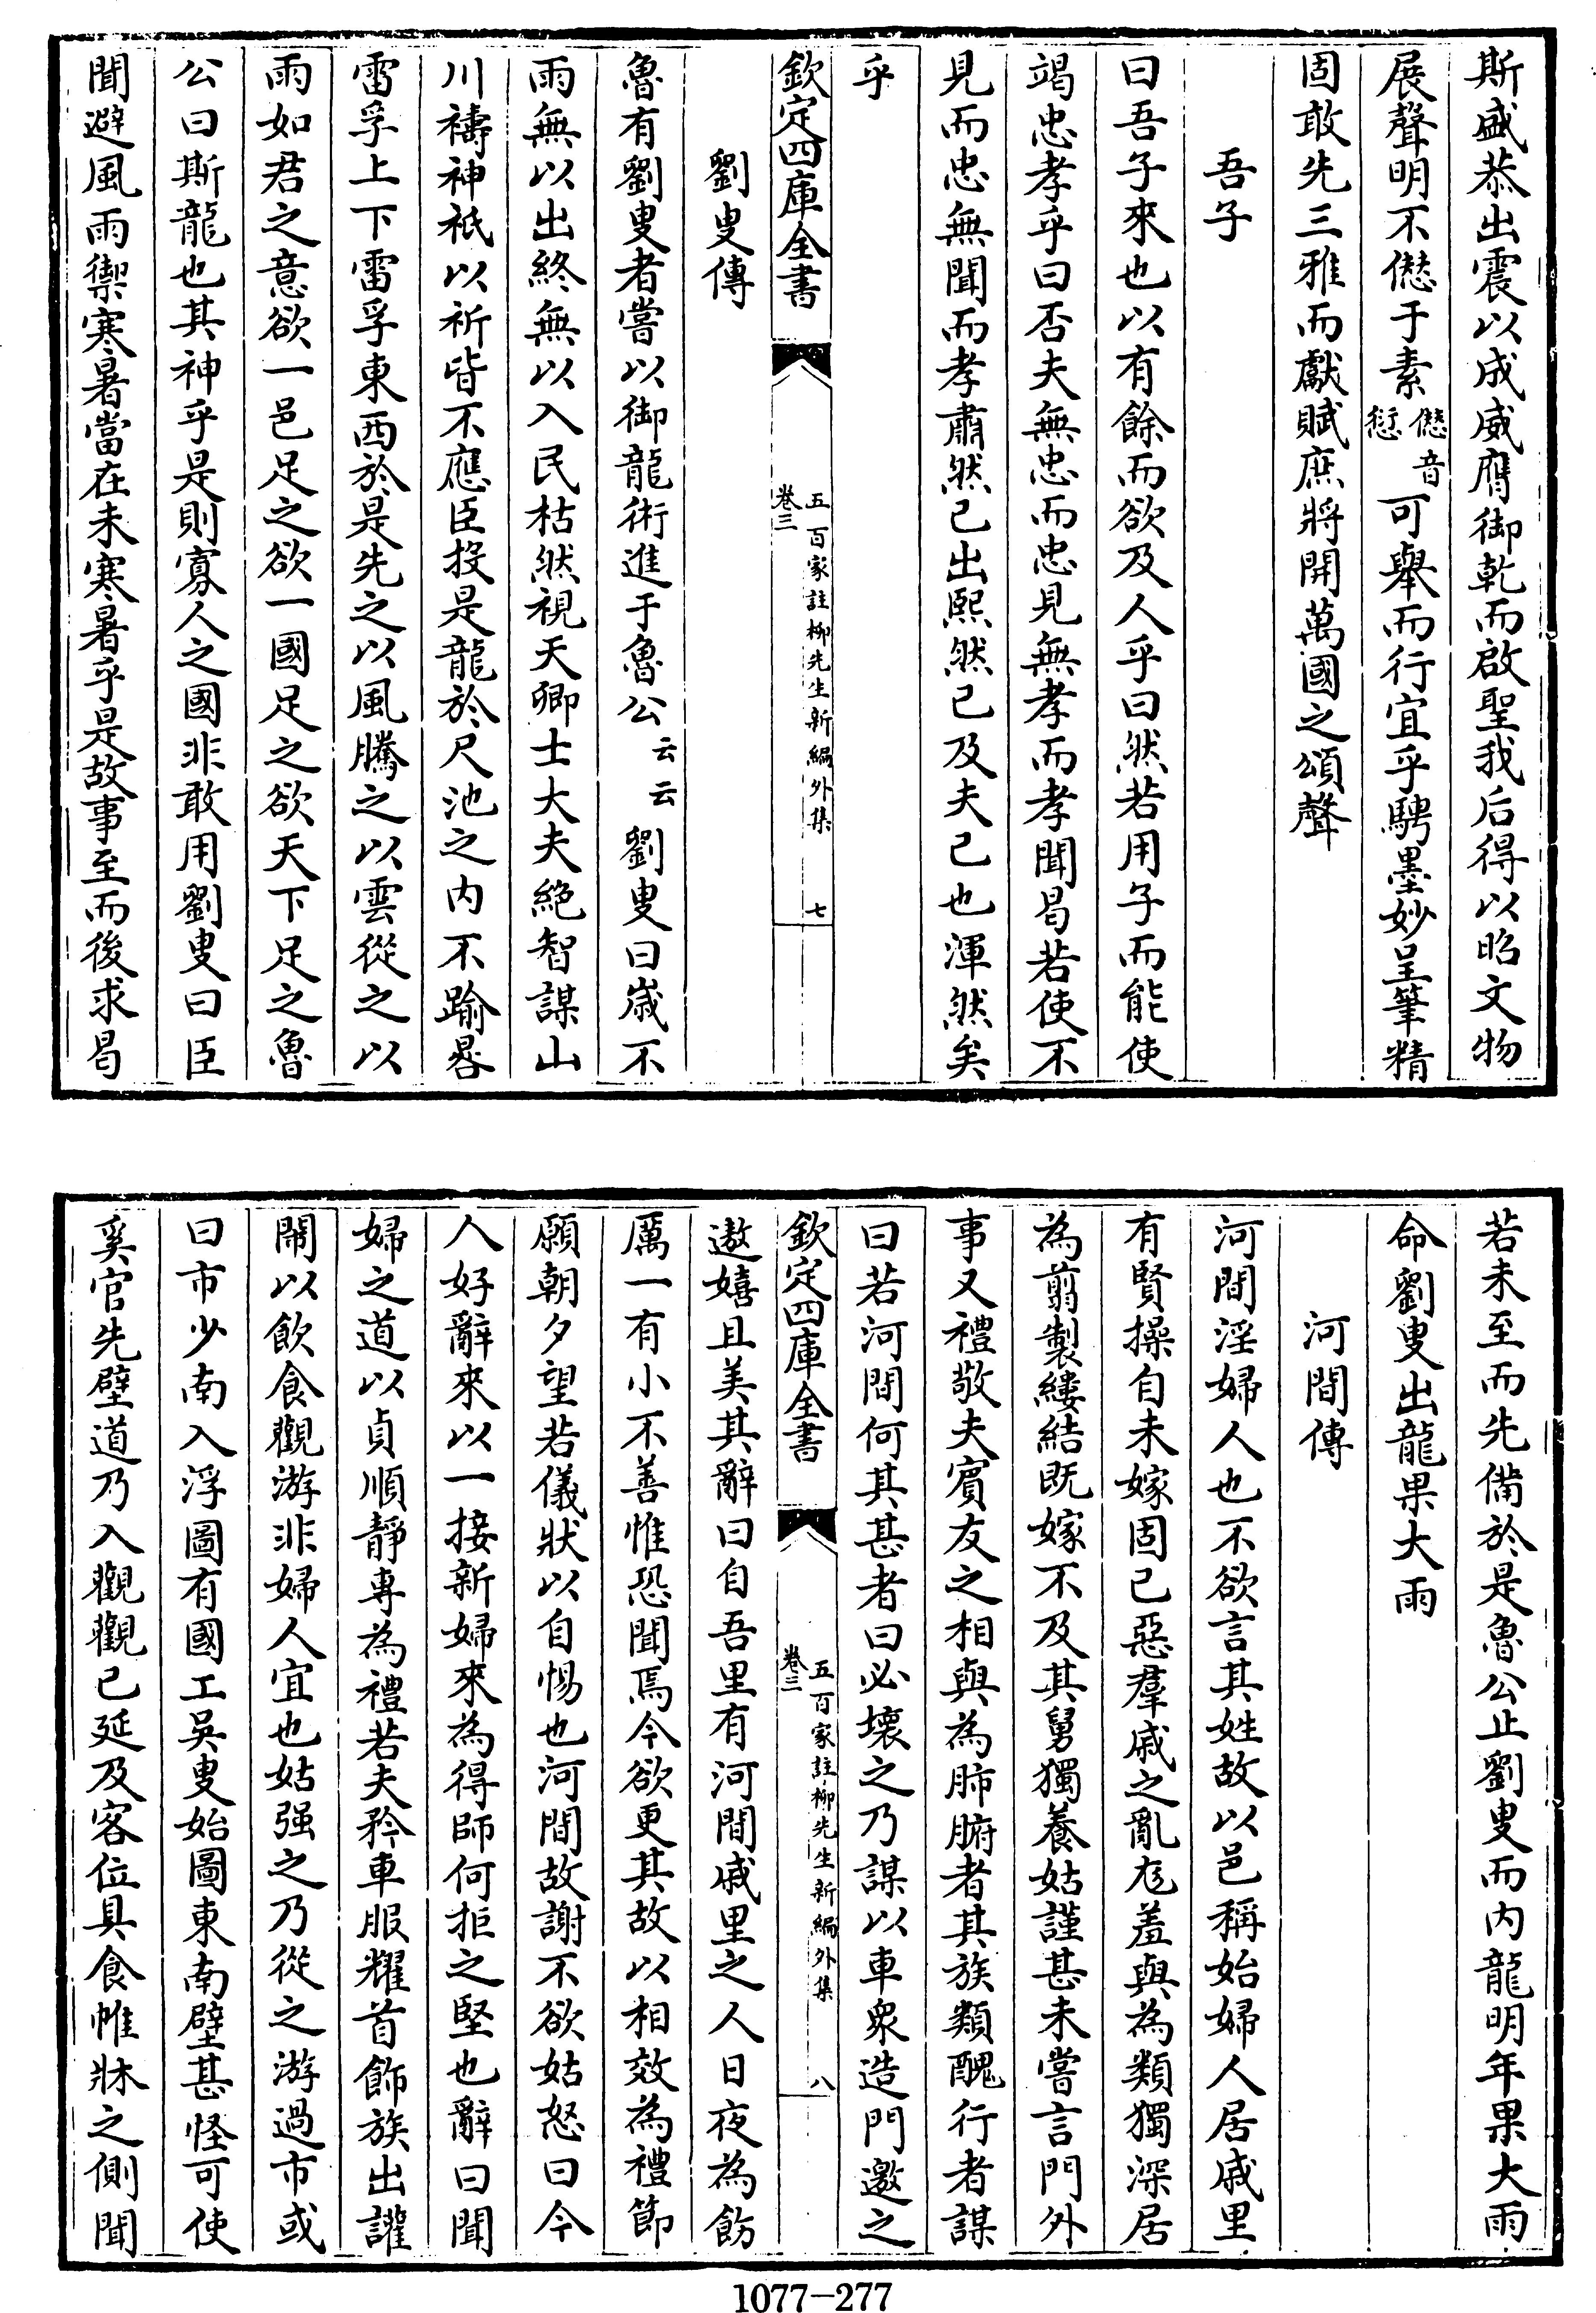 斯盛恭出震以成威膺御乾而啟聖我后得以昭文物
展聲明不僽于素僽音愆可舉而行宜乎騁墨妙呈筆精
固敢先三雅而獻賦庶將開萬國之頌聲
吾子
曰吾子來也以有餘而欲及人乎曰然若用子而能使
竭忠孝乎曰否夫無忠而忠見無孝而孝聞曷若使不
見而忠無聞而孝肅然已出熙然已及夫已也渾然矣
乎
欽定四庫全書
五百家註柳先生新編外集
卷三
七
劉叟傳
魯有劉叟者嘗以御龍術進于魯公云云劉叟曰嵗不
雨無以出終無以入民枯然視天卿士大夫絕智謀山
川禱神祇以祈皆不應臣投是龍於尺池之內不踰晷
雷孚上下雷孚東西於是先之以風騰之以雲從之以
雨如君之意欲一邑足之欲一國足之欲天下足之魯
公曰斯龍也其神乎是則寡人之國非敢用劉叟曰臣
聞避風雨禦寒暑當在未寒暑乎是故事至而後求曷
若未至而先備於是魯公止劉叟而內龍明年果大雨
命劉叟出龍果大雨
河間傳
河間淫婦人也不欲言其姓故以邑稱始婦人居戚里
有賢操自未嫁固已惡羣戚之亂尨羞與為類獨深居
為翦製縷結既嫁不及其舅獨養姑謹甚未嘗言門外
事又禮敬夫賓友之相與為肺腑者其族類醜行者謀
曰若河間何其甚者曰必壞之乃謀以車衆造門邀之
欽定四庫全書
五百家註柳先生新編外集
卷三
八
遨嬉且美其辭曰自吾里有河間戚里之人日夜為飭
厲一有小不善惟恐聞焉今欲更其故以相效為禮節
願朝夕望若儀狀以自惕也河間故謝不欲姑怒曰今
人好辭來以一接新婦來為得師何拒之堅也辭曰聞
婦之道以貞順靜專為禮若夫矜車服耀首飾族出讙
鬧以飲食觀游非婦人宜也姑强之乃從之游過市或
曰市少南入浮圖有國工吳叟始圖東南壁甚怪可使
奚官先壁道乃入觀觀已延及客位具食帷牀之側聞
1077-277